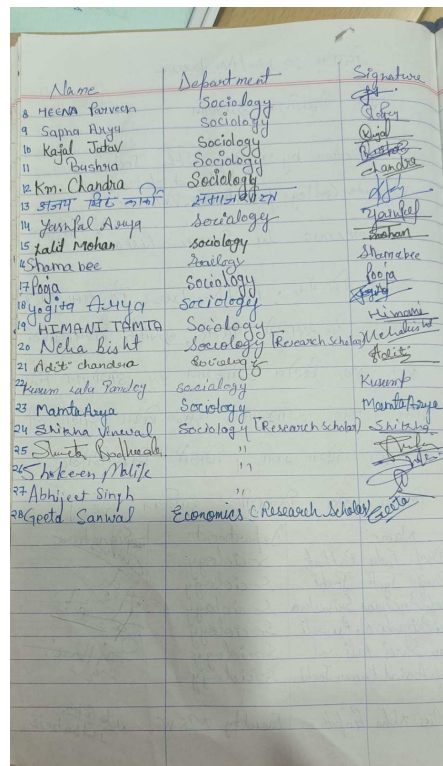 Name Department Signature
8 HEENA Parveen Sociology
9 Sapna Arya Sociology
10 Kajal Jatav Sociology Kajal
11 Bushra Sociology Bushra
12 Km. Chandra Sociology Chandra
13 अजय सिंह कार्की समाजशास्त्र Ajay
14 Yashpal Arya Sociology Yashpal
15 Lalit Mohan sociology Mohan
16 Shama bee Sociology Shamabee
17 Pooja Sociology Pooja
18 Yogita Arya Sociology Yogita
19 HIMANI TAMTA Sociology Himani
20 Neha Bisht Sociology [Research Scholar] Nehabisht
21 Aditi chandra Sociology Aditi
22 Kusum Lata Pandey sociology Kusump
23 Mamta Arya Sociology Mamta Arya
24 Shikha Sociology [Research Scholar] Shikha
25 Shweta "
26 "
27 Abhijeet Singh "
28 Geeta Sanwal Economics (Research Scholar) Geeta